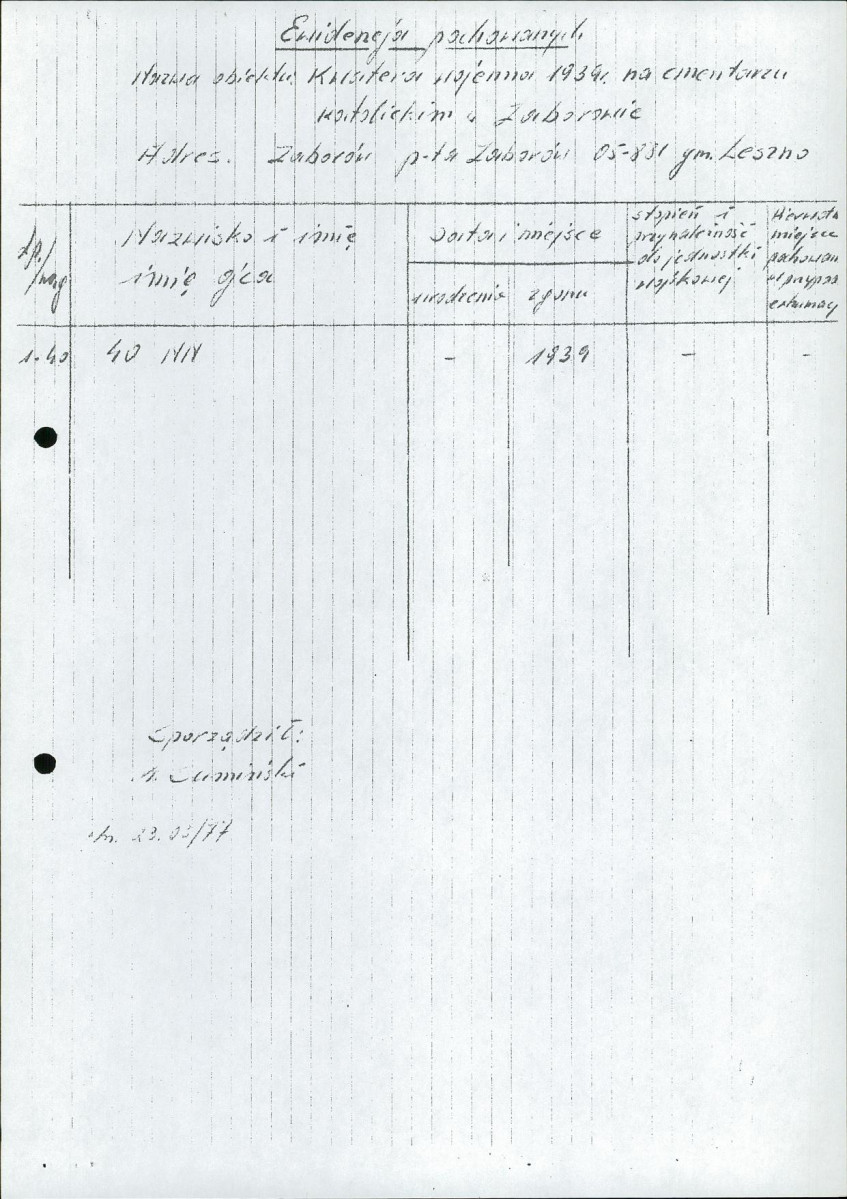 Ewidencja pochowanych
Nazwa obiektu: Kwatera wojenna 1939r. na cmentarzu
katolickim w Zaborowie
Adres. Zaborów p-ta Zaborów 05-831 gm. Leszno
Lp./
Nazwisko i imię
imię ojca
Data i miejsce
urodzenia
zgonu
stopień i
przynależność
do jednostki
wojskowej
Pierwsze
miejsce
pochowan
w przypad
ekshumacj
1-40 40 NN - 1939 - -
Sporządził:
dn. 23.03/77